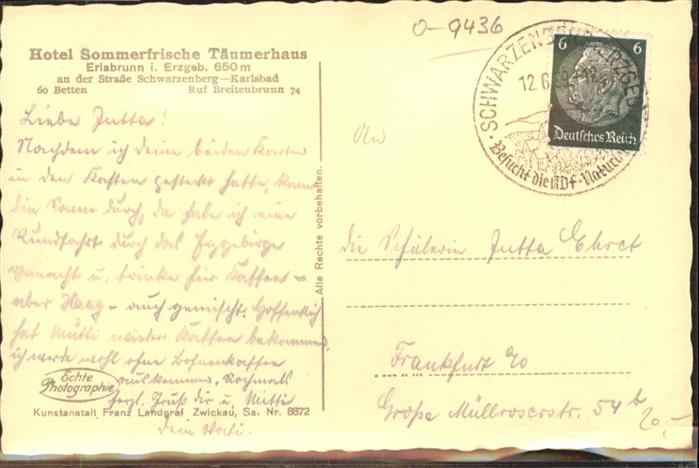 O-9436
Hotel Sommerfrische Täumerhaus
Erlabrunn i. Erzgeb. 650 m
an der Straße Schwarzenberg—Karlsbad
60 Betten Ruf Breitenbrunn 74
Liebe Jutta!
Nachdem ich Deine beiden Karten
in den Kasten gesteckt hatte, kam
die Sonne durch, da habe ich eine
Rundfahrt durch das Erzgebirge
gemacht u. trinke hier Kaffee -
aber Haag - auch gemischt. Hoffentlich
hat Mutti wieder Kaffee bekommen,
ich werde wohl ohne Bohnenkaffee
auskommen. Nochmals
herzl. Gruß dir u. Mutti
Dein Vati.
Echte
Photographie
Kunstanstalt Franz Landgraf Zwickau, Sa. Nr. 8872
Alle Rechte vorbehalten.
SCHWARZENBERG ERZGEB
12.6.
Besucht die KDF-
6 6
Deutsches Reich
An
die Schülerin Jutta Ehret
Frankfurt O
Große Müllroserstr. 54 b
20,-